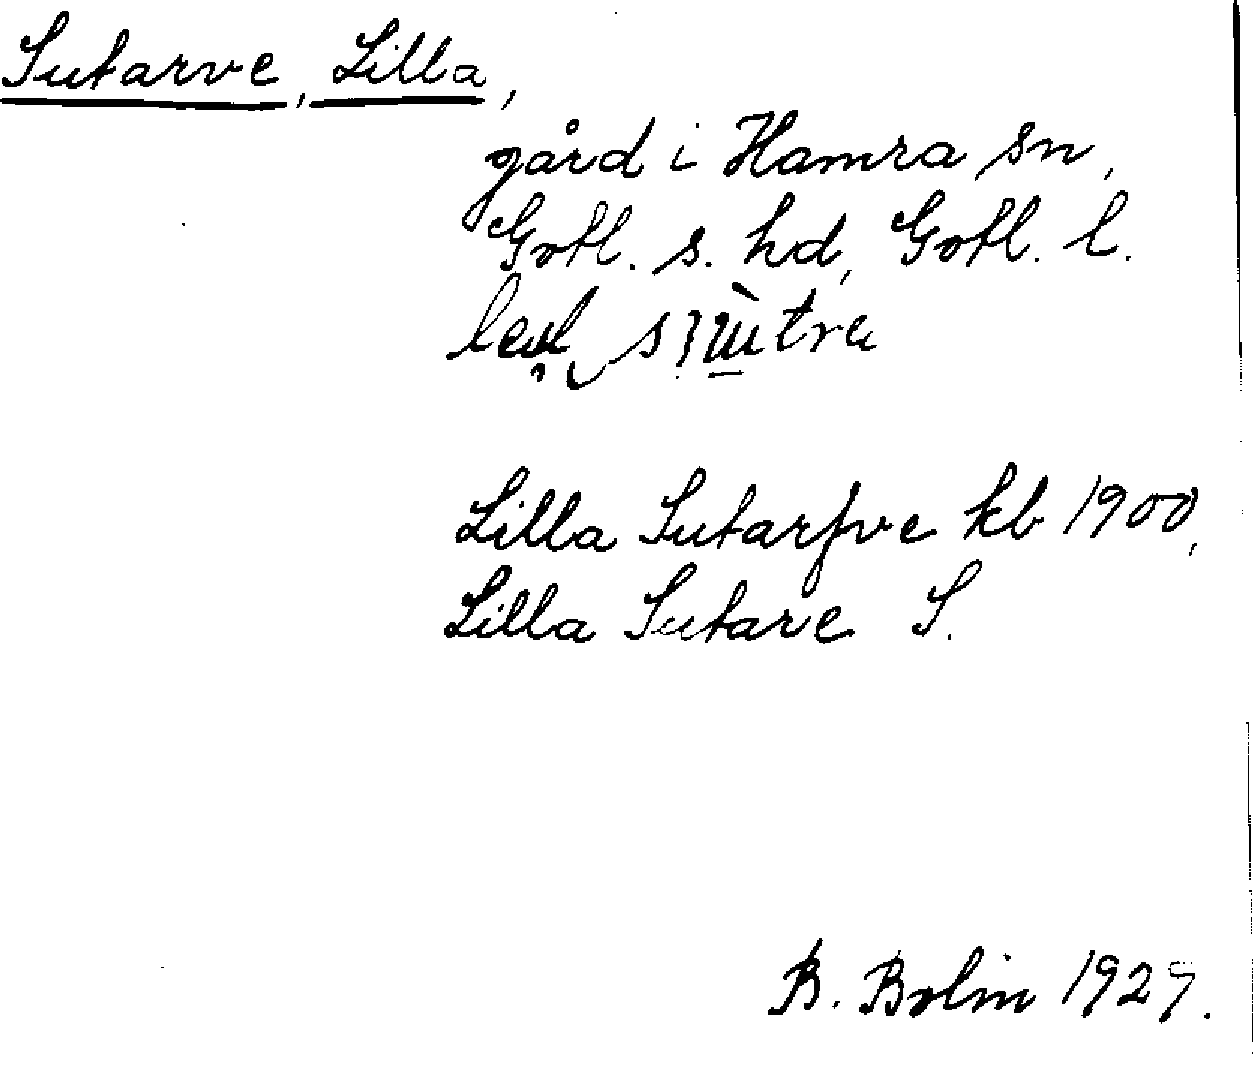 Sutarve, Lilla,
gård i Hamra sn,
Gotl. s. hd, Gotl. l.
Lilla Sutarfve kb 1900,
Lilla Sutare S.
B. Bolin 1929.